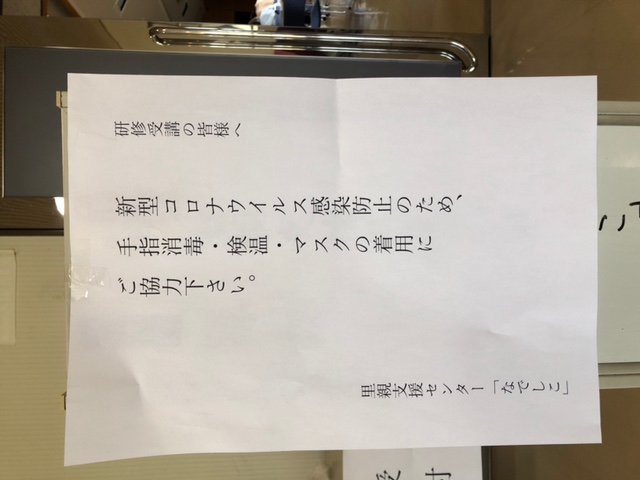 研修受講の皆様へ
新型コロナウイルス感染防止のため、
手指消毒・検温・マスクの着用に
ご協力下さい。
里親支援センター「なでしこ」
受付